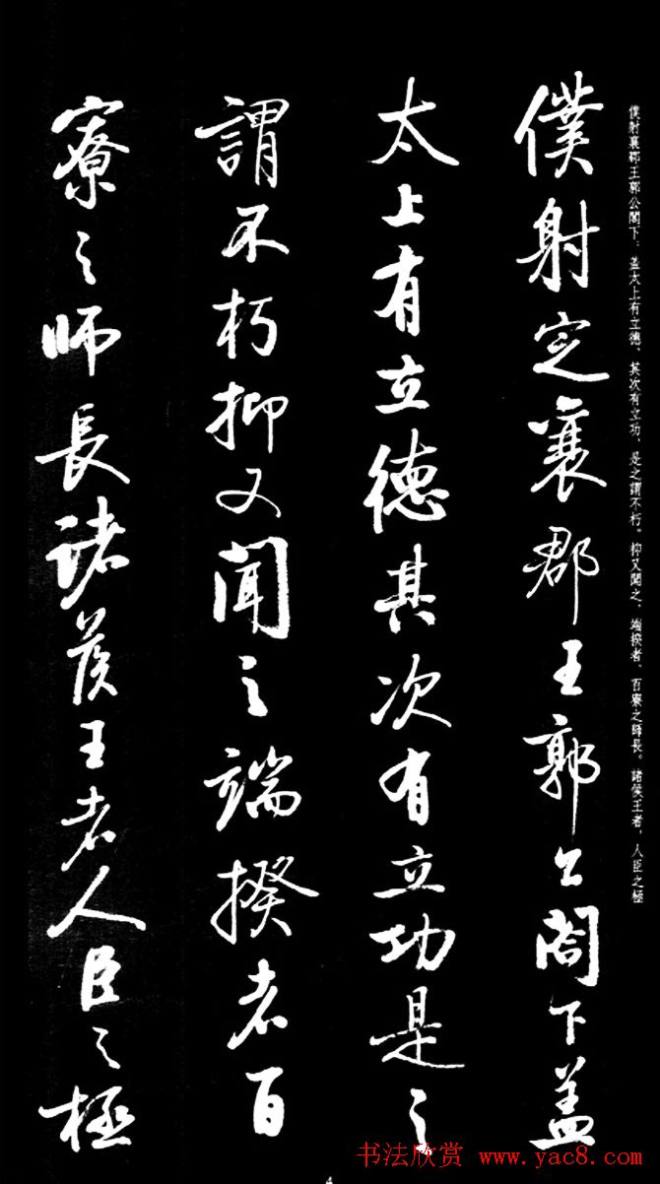 僕射襄郡王郭公閣下：蓋太上有立德、其次有立功、是之謂不朽。抑又聞之、端揆者、百寮之師長。諸侯王者、人臣之極
僕射定襄郡王郭公閣下蓋
太上有立德其次有立功是之
謂不朽抑又聞之端揆者百
寮之師長諸侯王者人臣之極
书法欣赏 www.yac8.com
4